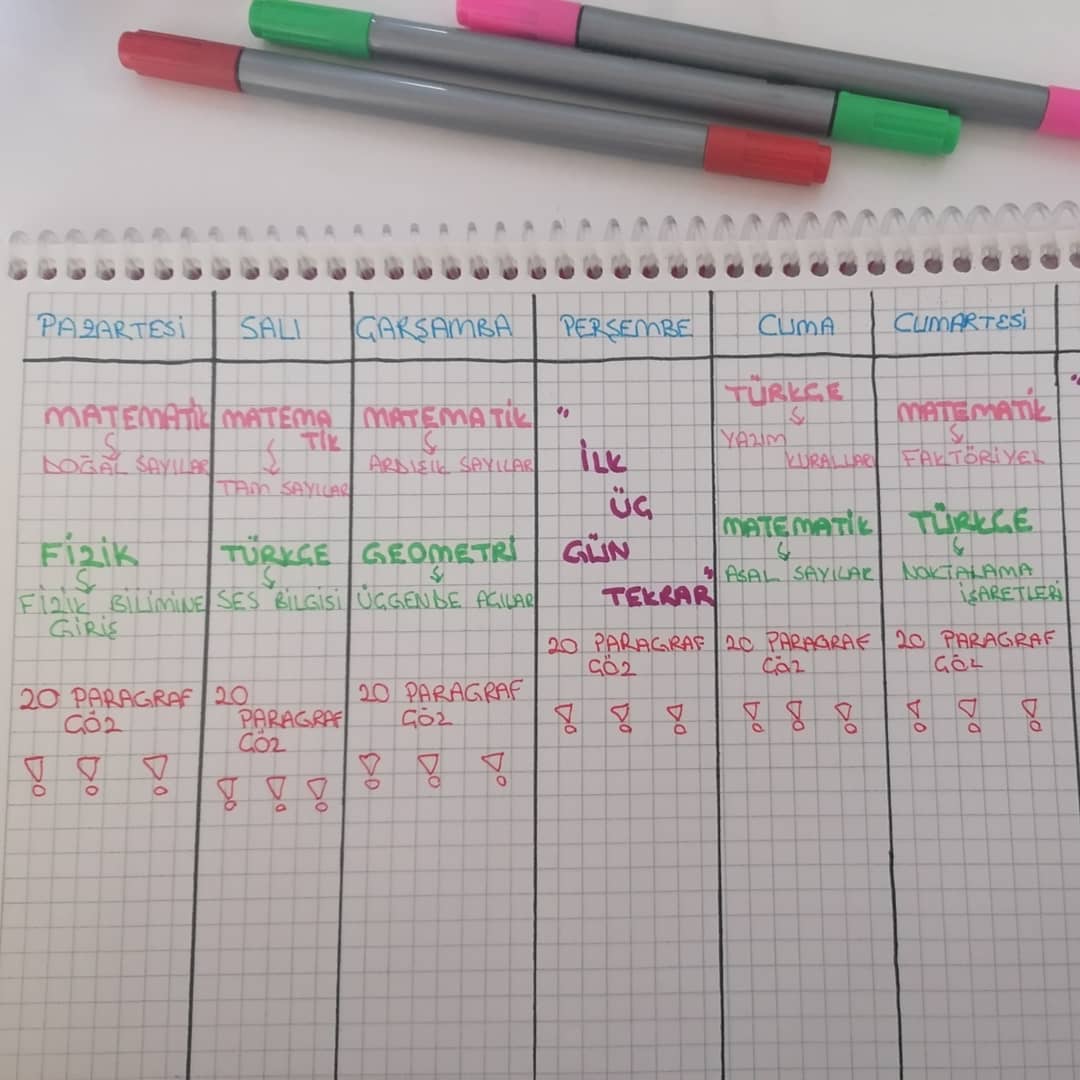 PAZARTESİ
SALI
ÇARŞAMBA
PERŞEMBE
CUMA
CUMARTESİ
MATEMATİK
DOĞAL SAYILAR
FİZİK
FİZİK BİLİMİNE
GİRİŞ
20 PARAGRAF
ÇÖZ
! ! !
MATEMA
TİK
TAM SAYILAR
TÜRKÇE
SES BİLGİSİ
20
PARAGRAF
ÇÖZ
! ! !
MATEMATİK
ARDIŞIK SAYILAR
GEOMETRİ
ÜÇGENDE AÇILAR
20 PARAGRAF
ÇÖZ
! ! !
"
İLK
ÜÇ
GÜN
TEKRAR"
20 PARAGRAF
ÇÖZ
! ! !
TÜRKÇE
YAZIM
KURALLARI
MATEMATİK
ASAL SAYILAR
20 PARAGRAF
ÇÖZ
! ! !
MATEMATİK
FAKTÖRİYEL
TÜRKÇE
NOKTALAMA
İŞARETLERİ
20 PARAGRAF
ÇÖZ
! ! !